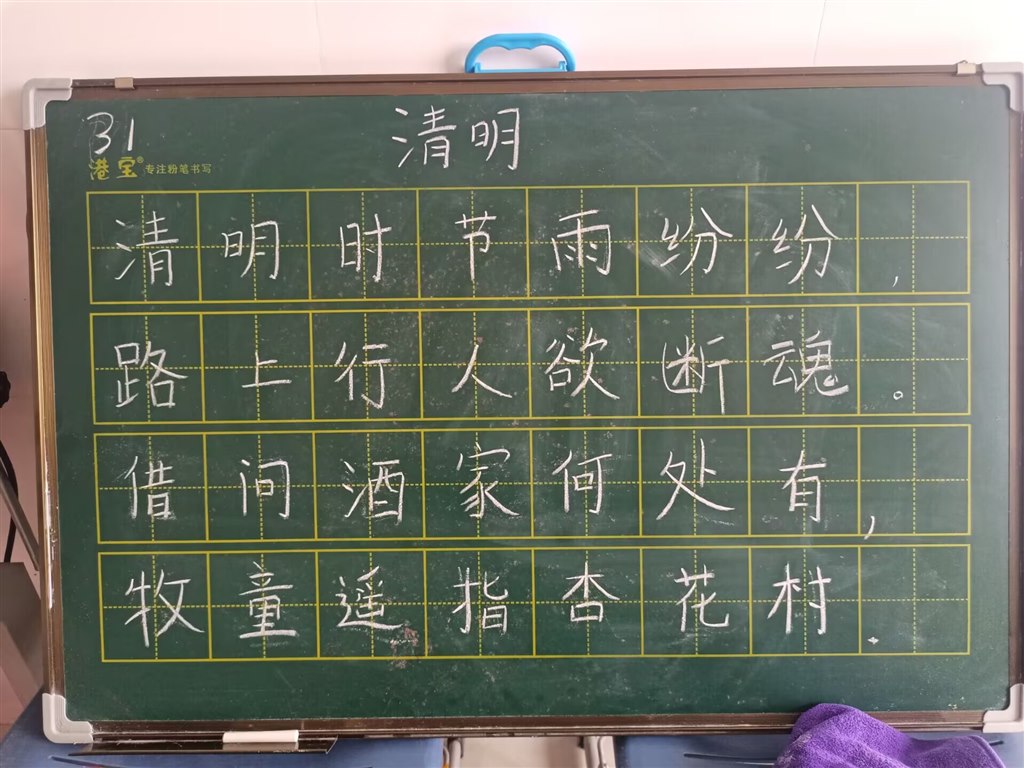 31
清明
港宝® 专注粉笔书写
清明时节雨纷纷,
路上行人欲断魂。
借问酒家何处有,
牧童遥指杏花村.